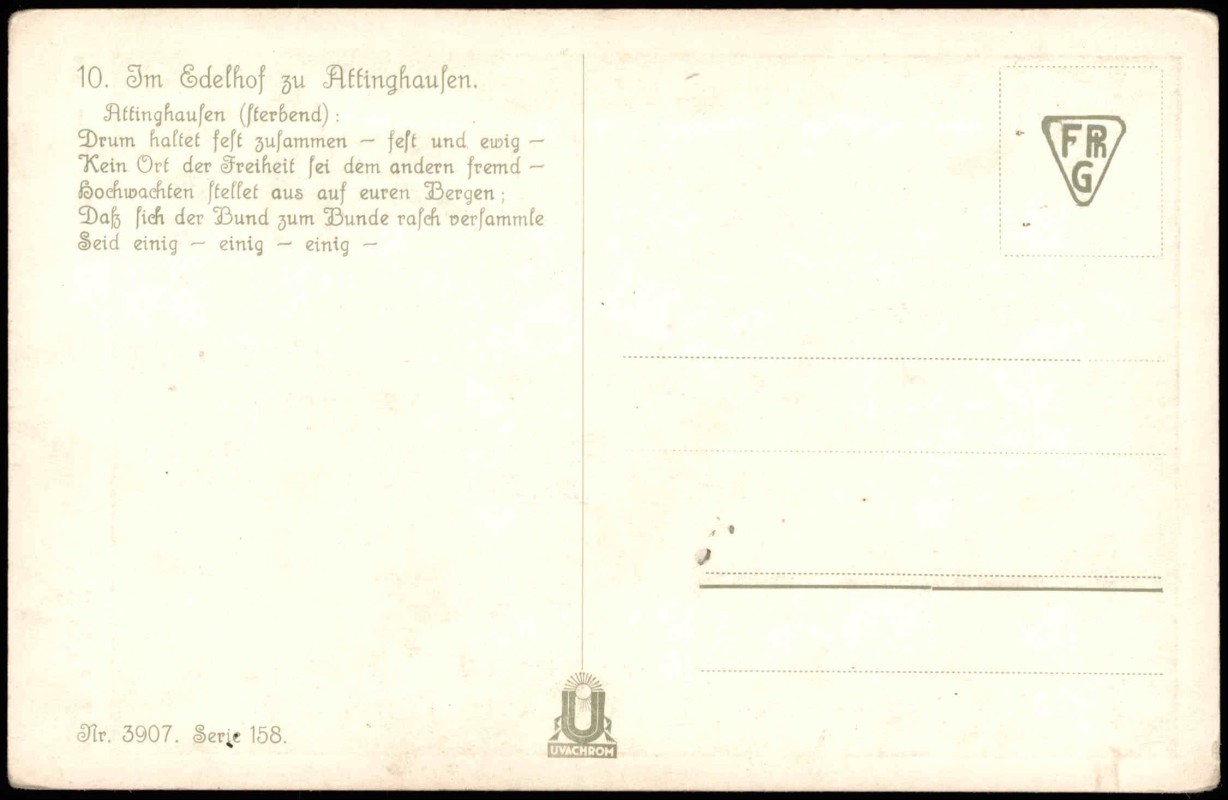 10. Im Edelhof zu Attinghausen.
Attinghausen (sterbend):
Drum haltet fest zusammen – fest und ewig –
Kein Ort der Freiheit sei dem andern fremd –
Hochwachten stellet aus auf euren Bergen;
Daß sich der Bund zum Bunde rasch versammle
Seid einig – einig – einig –
Nr. 3907. Serie 158.
UVACHROM
FPR
G